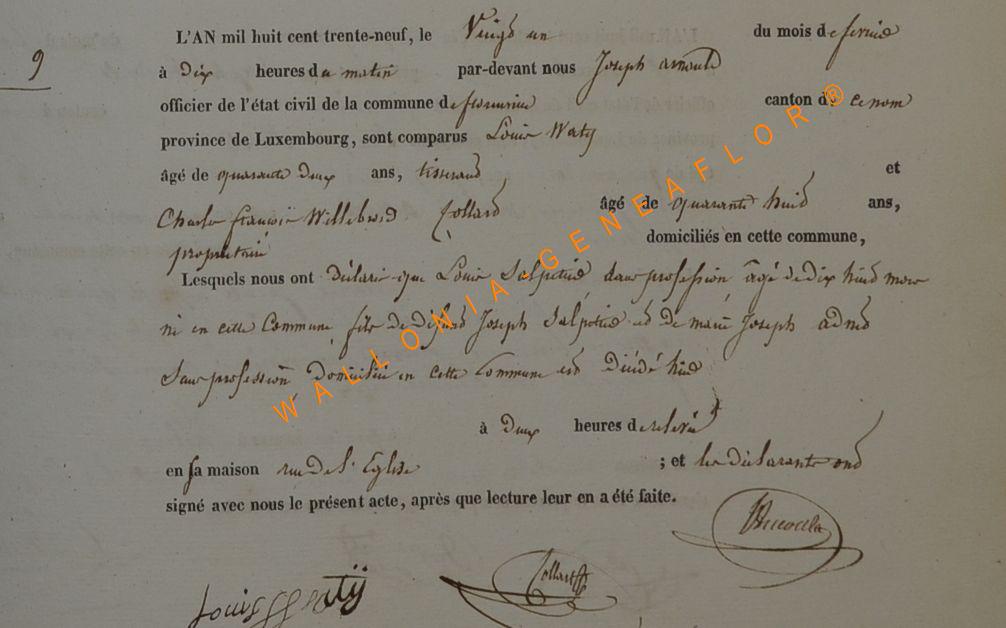 9
L'AN mil huit cent trente-neuf, le Vingt un du mois de fevrier
à Dix heures du matin par-devant nous Joseph
officier de l'état civil de la commune de canton de ce nom
province de Luxembourg, sont comparus Louis Waty
âgé de quarante Deux ans, tisserand et
Charles françois Willebrod Collard âgé de quarante huit ans,
propriétaire domiciliés en cette commune,
Lesquels nous ont déclaré que Louis Salpetier sans profession âgé de Dix huit mois
né en cette Commune, fils de Défunt Joseph Salpetier et De marie Joseph adnet
Sans profession, Domicilié en Cette Commune est Décédé hier
à Deux heures de relevée
en sa maison rue De l'Eglise ; et les déclarants ont
signé avec nous le présent acte, après que lecture leur en a été faite.
Louis Waty
Collard
WALLONIA-GENEAFLOR®